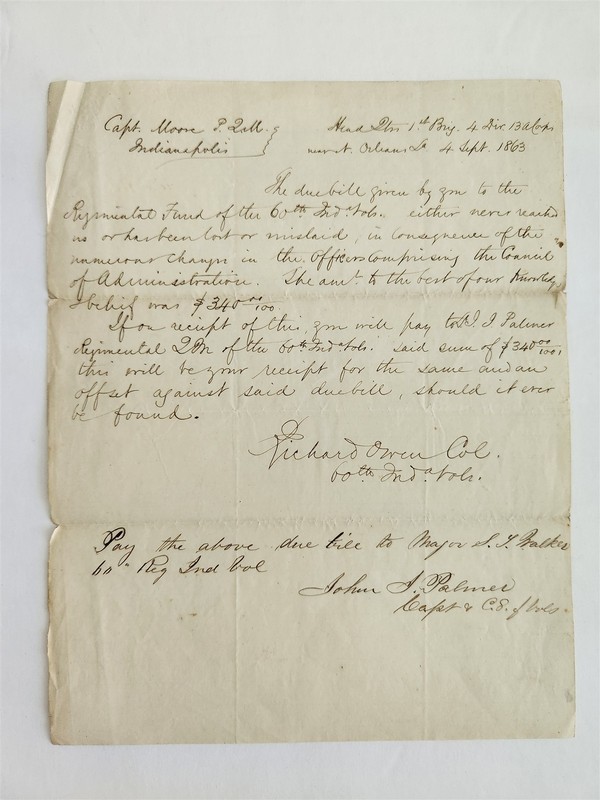 Capt. Moore P. Q.M. Head Qtrs 1st Brig. 4 Div. 13 A Corps
Indianapolis near N. Orleans La 4 Sept. 1863
The due bill given by you to the
Regimental Fund of the 60th Inda. Vols. either never reached
us or has been lost or mislaid, in consequence of the
numerous changes in the officers comprising the Council
of Administration. The amt. to the best of our knowledge
& belief was $340 00/100.
If on receipt of this, you will pay to Lt. J. J. Palmer
Regimental QM of the 60th Inda. Vols. said sum of $340 00/100,
this will be your receipt for the same and an
offset against said due bill, should it ever
be found.
Richard Owen Col.
60th Inda. Vols.
Pay the above due bill to Major S. T. Walker
60" Reg Ind Vol
John J. Palmer
Capt & C.S. of Vols.